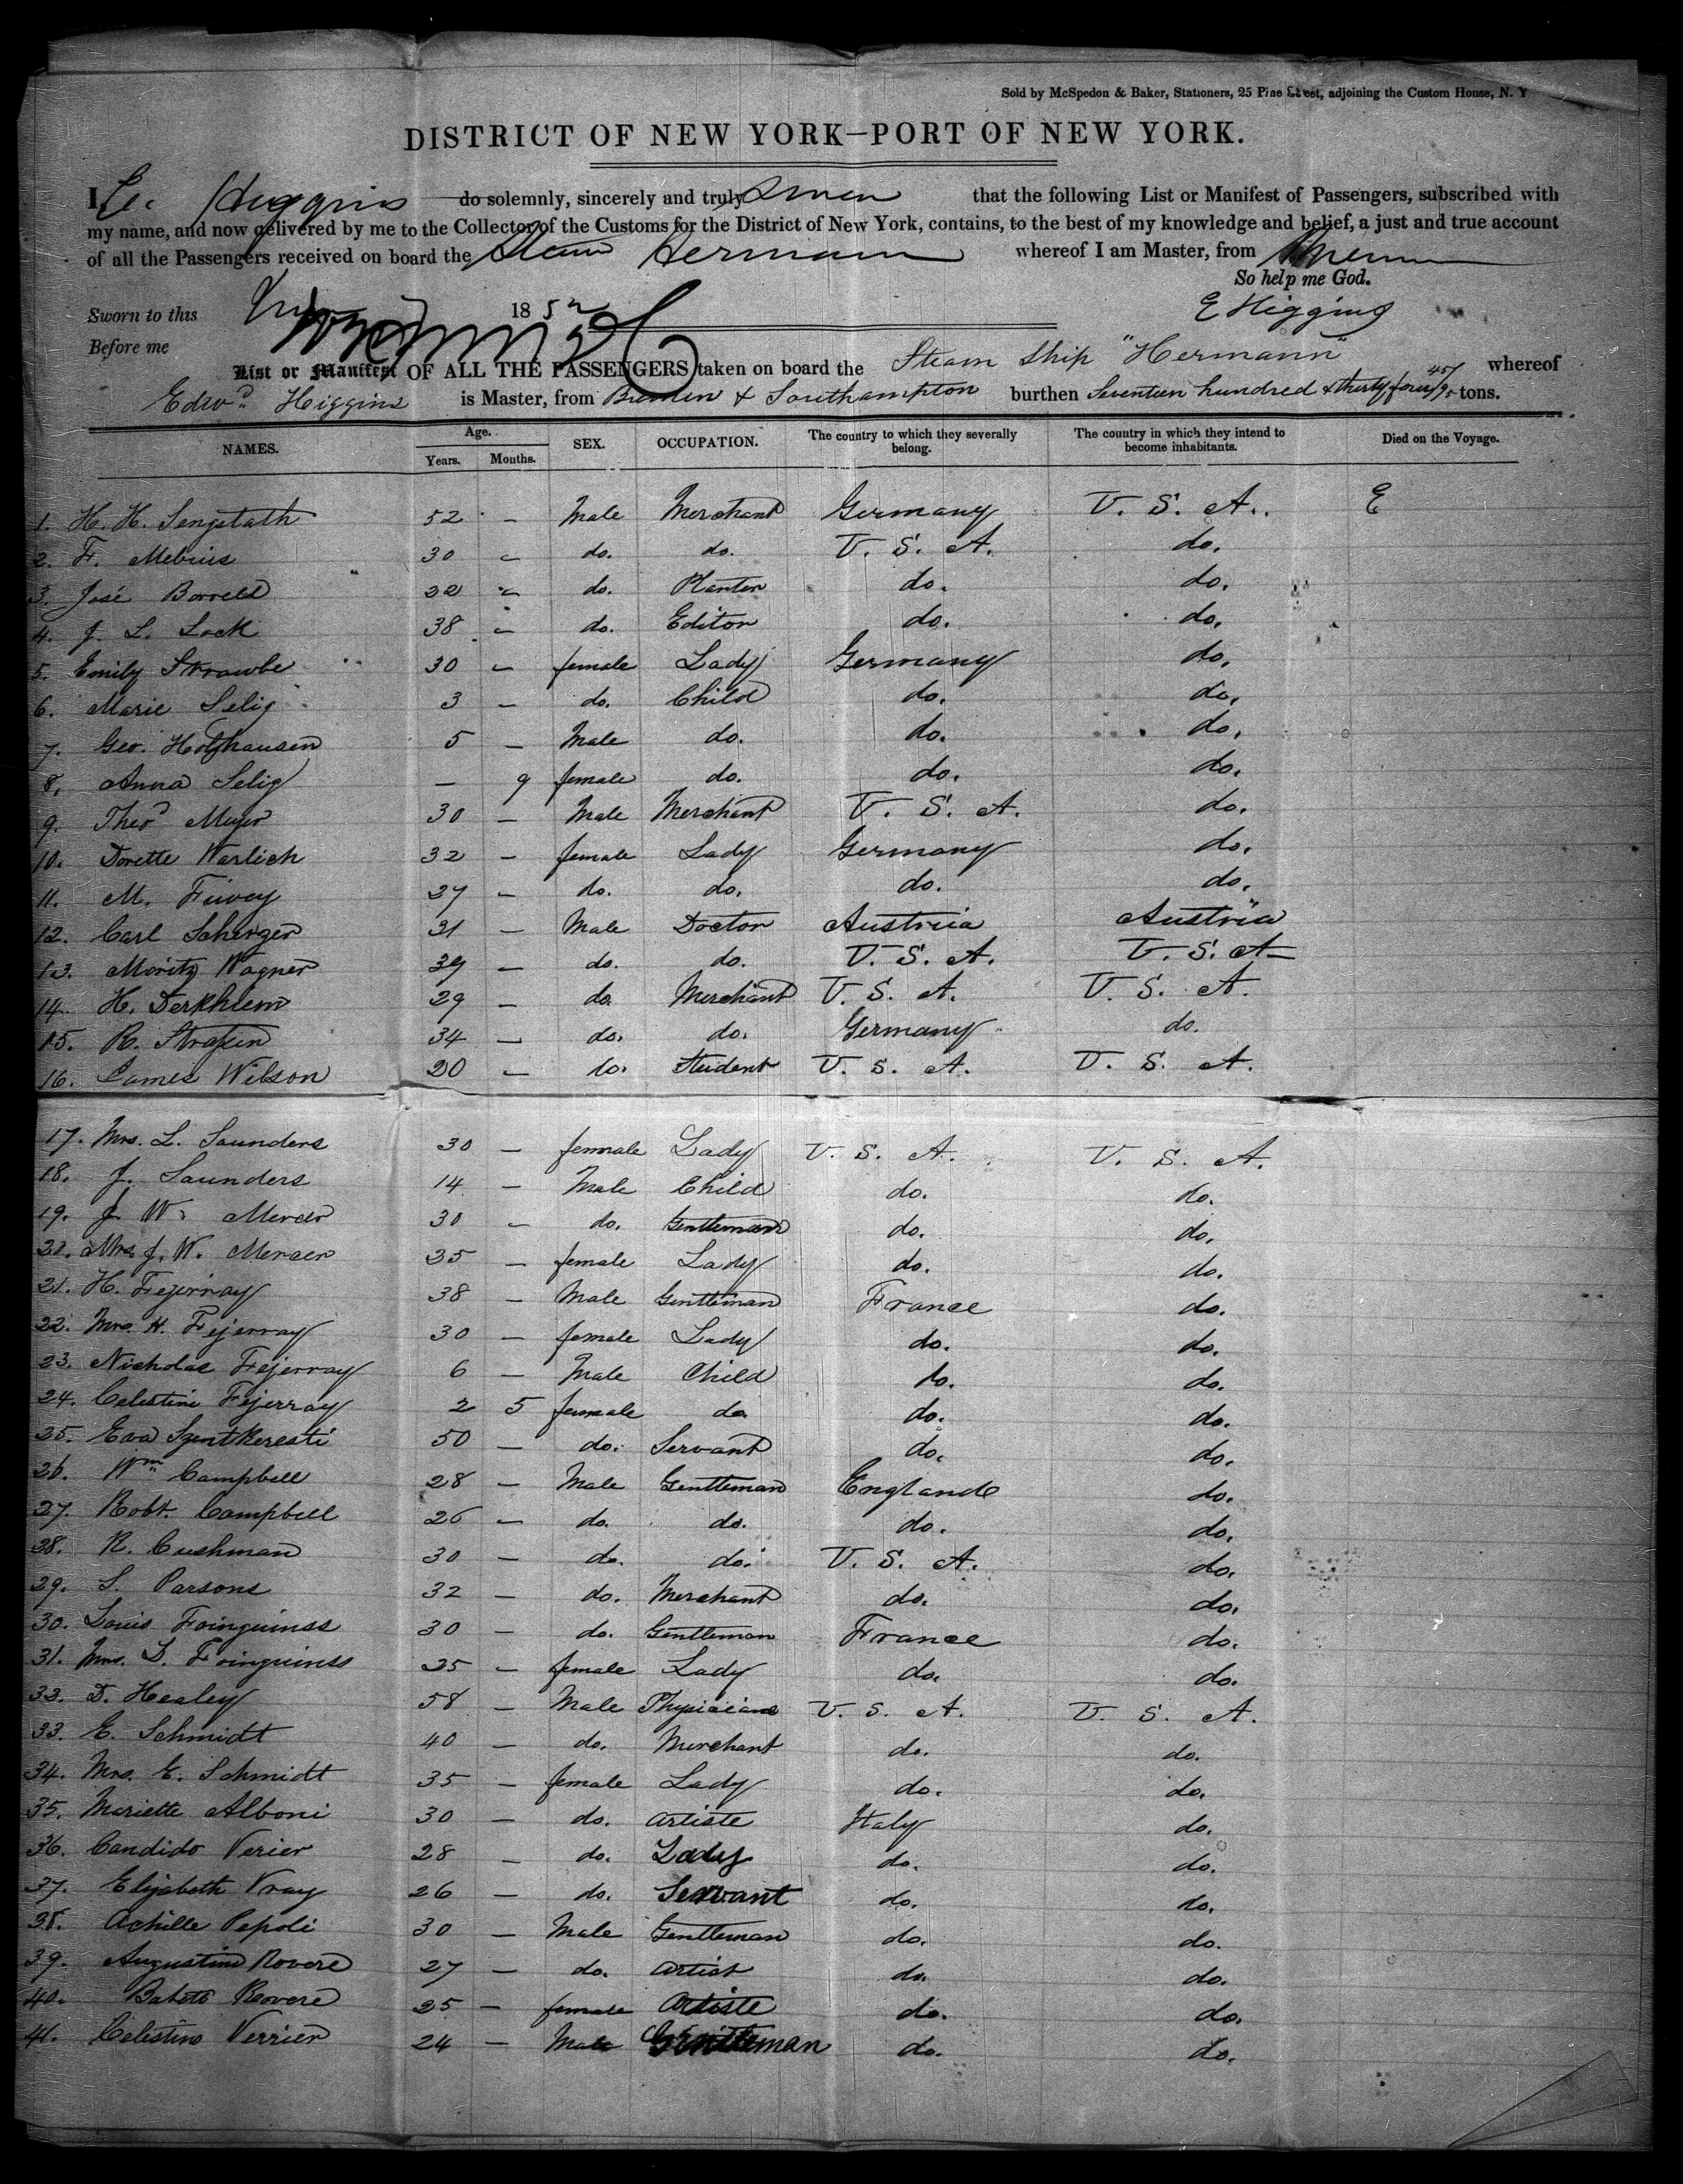 Sold by McSpedon & Baker, Stationers, 25 Pine Street, adjoining the Custom House, N. Y
DISTRICT OF NEW YORK—PORT OF NEW YORK.
I, E. Higgins do solemnly, sincerely and truly swear that the following List or Manifest of Passengers, subscribed with
my name, and now delivered by me to the Collector of the Customs for the District of New York, contains, to the best of my knowledge and belief, a just and true account
of all the Passengers received on board the Steam Hermann whereof I am Master, from Bremen
So help me God.
Sworn to this 1852 E Higgins
Before me
List or Manifest OF ALL THE PASSENGERS taken on board the Steam Ship "Hermann" whereof
Edwd. Higgins is Master, from Bremen & Southampton burthen Seventeen hundred & thirty four 45/95 tons.
NAMES. Age. Years. Months. SEX. OCCUPATION. The country to which they severally belong. The country in which they intend to become inhabitants. Died on the Voyage.
1. H. H. Sengstath 52 – Male Merchant Germany U. S. A. E
2. Fr. Mebius 30 – do. do. U. S. A. do.
3. José Borreld 22 – do. Planter do. do.
4. J. L. Lock 38 – do. Editor do. do.
5. Emily Strawbe 30 – female Lady Germany do.
6. Marie Selig 3 – do. Child do. do.
7. Geo. Holzhausen 5 – Male do. do. do.
8. Anna Selig – 9 female do. do. do.
9. Theod Meyer 30 – Male Merchant U. S. A. do.
10. Dorette Warlich 32 – female Lady Germany do.
11. M. Fuvey 27 – do. do. do. do.
12. Carl Scherzer 31 – Male Doctor Austria Austria
13. Moritz Wagner 39 – do. do. U. S. A. U. S. A
14. H. Derkhiem 29 – do. Merchant U. S. A. U. S. A.
15. R. Strafsen 34 – do. do. Germany do.
16. James Wilson 20 – do. Student U. S. A. U. S. A.
17. Mrs. L. Saunders 30 – female Lady U. S. A. U. S. A.
18. J. Saunders 14 – Male Child do. do.
19. J. W. Mercer 30 – do. Gentleman do. do.
20. Mrs. J. W. Mercer 35 – female Lady do. do.
21. H. Fejerray 38 – Male Gentleman France do.
22. Mrs. H. Fejerray 30 – female Lady do. do.
23. Nicholas Fejerray 6 – Male Child do. do.
24. Celestine Fejerray 2 5 female do. do. do.
25. Eva Szentkeresti 50 – do. Servant do. do.
26. Wm. Campbell 28 – Male Gentleman England do.
27. Robt. Campbell 26 – do. do. do. do.
28. R. Cushman 30 – do. do. U. S. A. do.
29. S. Parsons 32 – do. Merchant do. do.
30. Louis Foinguinss 30 – do. Gentleman France do.
31. Mrs. L. Foinguinss 25 – female Lady do. do.
32. D. Healey 58 – Male Physician U. S. A. U. S. A.
33. E. Schmidt 40 – do. Merchant do. do.
34. Mrs. E. Schmidt 35 – female Lady do. do.
35. Mariette Alboni 30 – do. Artiste Italy do.
36. Candido Verier 28 – do. Lady do. do.
37. Elizabeth Vray 26 – do. Servant do. do.
38. Achille Pepoli 30 – Male Gentleman do. do.
39. Augustine Rovere 27 – do. Artist do. do.
40. Babett Rovere 25 – female Artiste do. do.
41. Celestino Verrier 24 – Male Gentleman do. do.